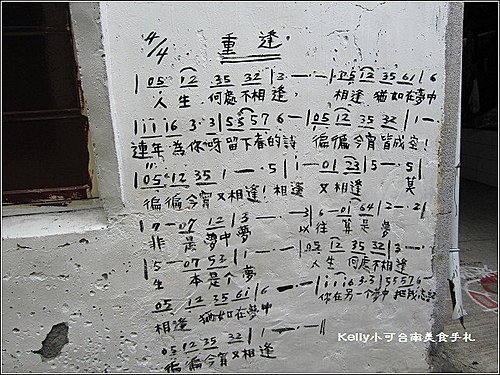 4/4 重逢
|05 12 35 32|2 - - -|35 12 35 61|6
人生 何處不相逢, 相逢 猶如在夢中
|1 1 1 6 3· 3|5 5 5 7 6 -|05 12 35 32|1 -
連年 為你呀 留下春的詩 偏偏今宵皆成空!
|05 12 35|1 - · 5|1 - 01 23|5 - · 5
偏偏今宵又相逢! 相逢 又相逢 莫
|7 - 07 12|3 - - - 3|6 - 01 64|2 - - 2|
非 是 夢中夢 以往 算是 夢
|5 - 07 53|1 - - - |05 12 35 32|3 - -
生 本是個夢 人生 何處不相逢
05 12 35 61|6 - - - |1 1 1 6 3· 3|5 5 5 7 6 -
相逢 猶如在夢中 你在另一個夢中 把我忘記
05 12 35 32|1 - - - ||
偏偏今宵又相逢
Kelly小可台南美食手札